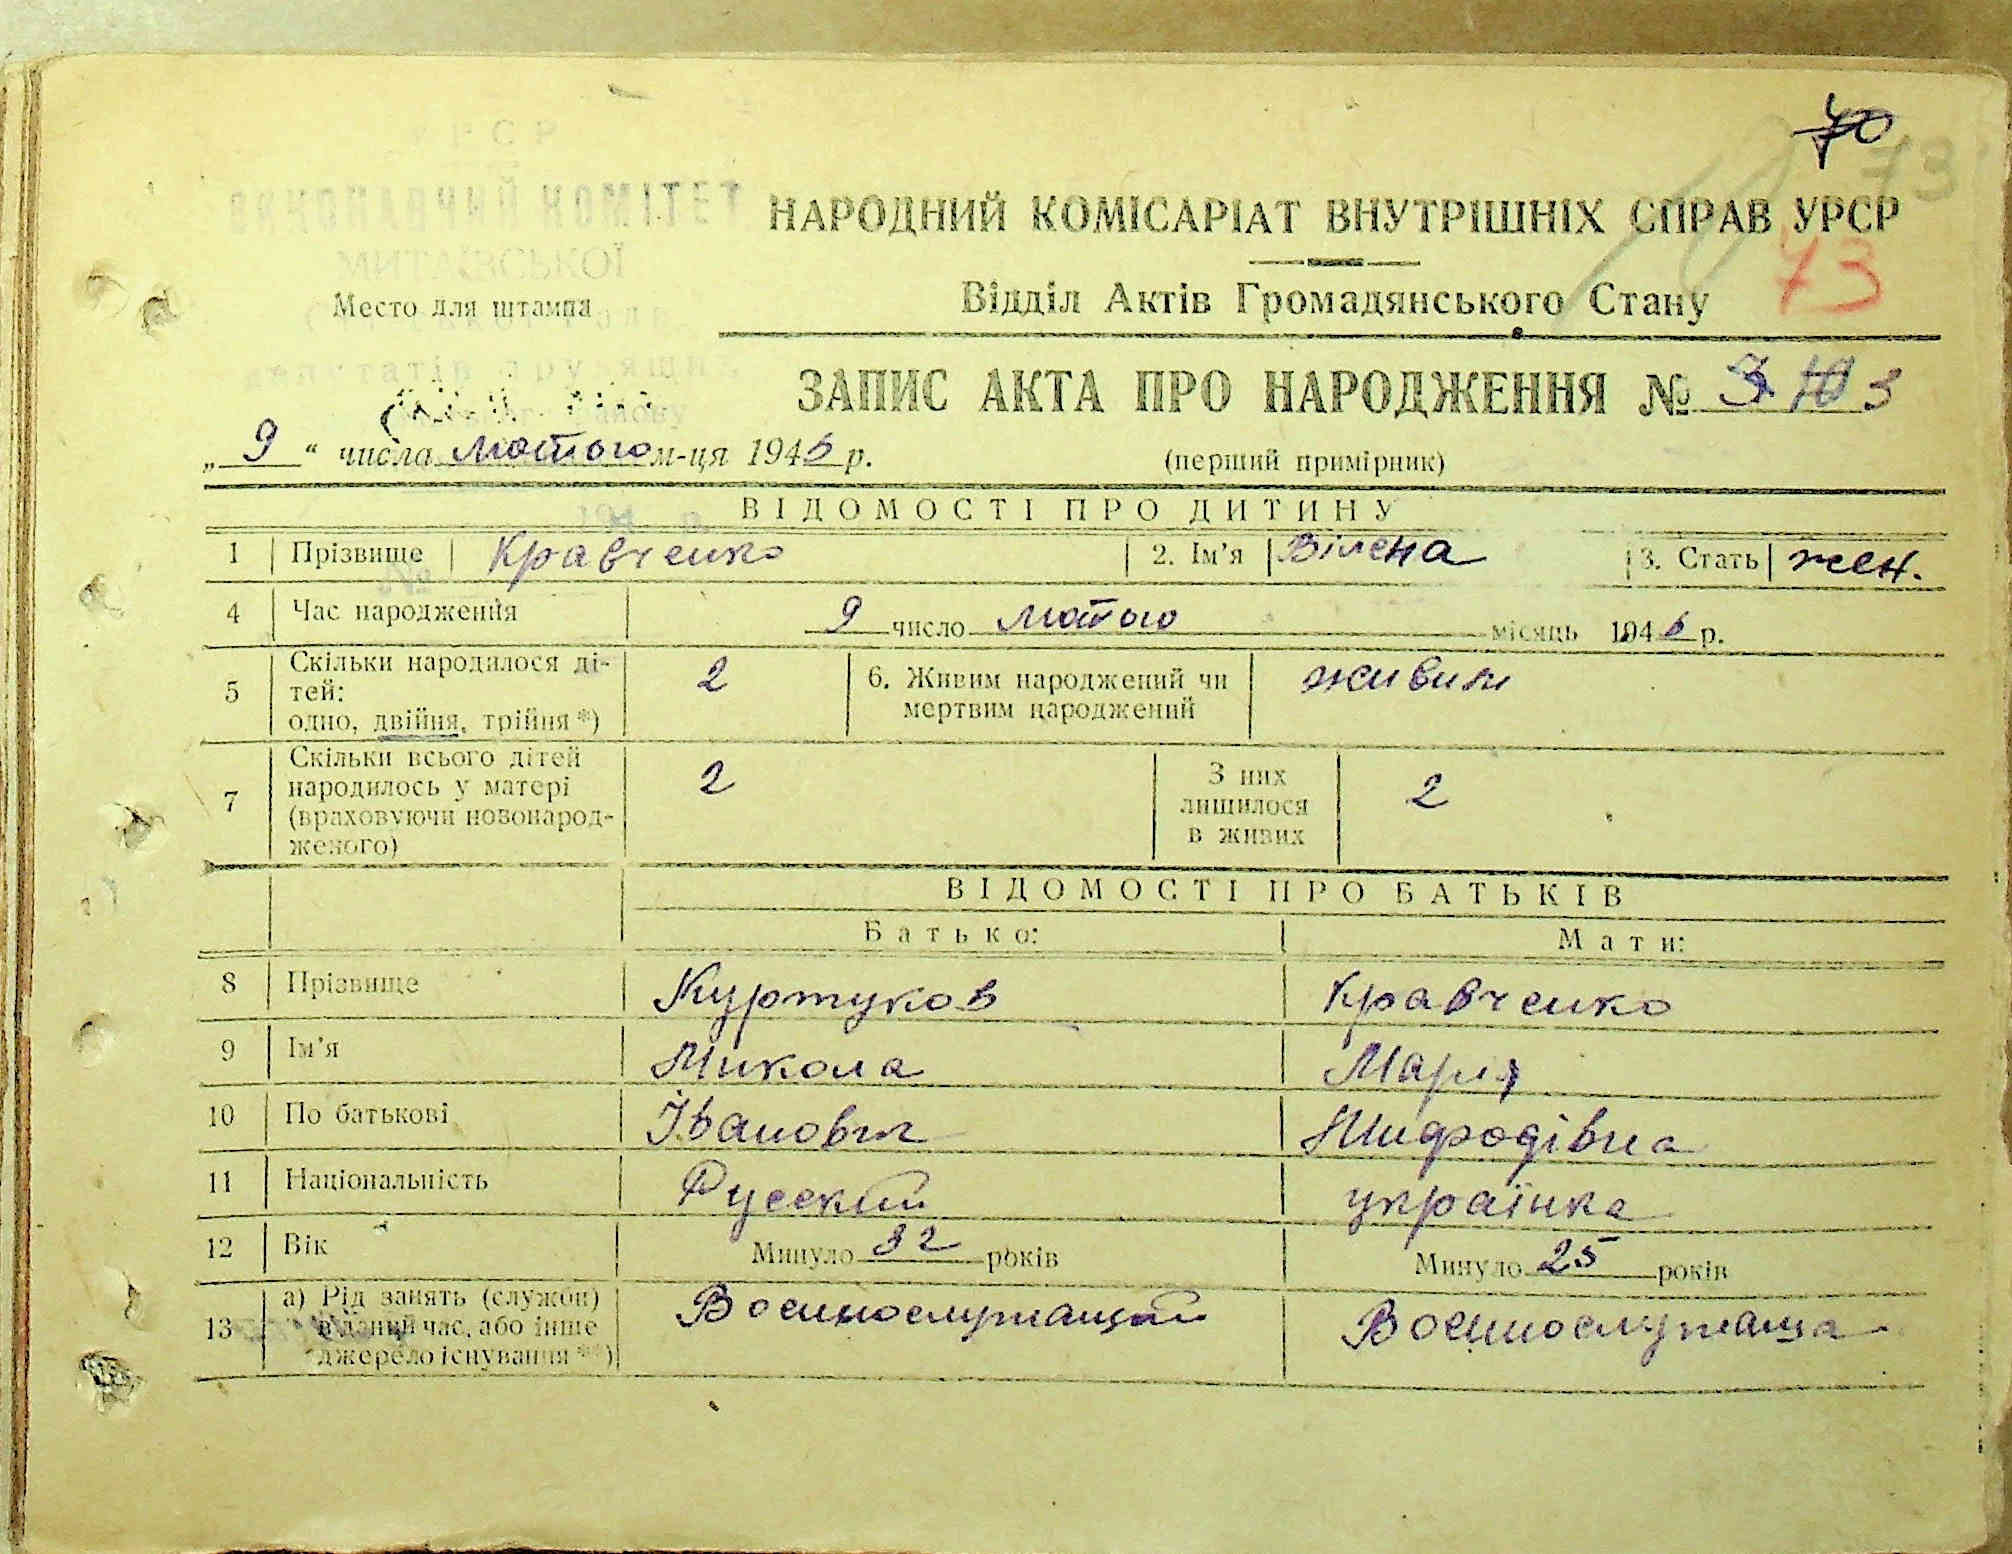 70 73
НАРОДНИЙ КОМІСАРІАТ ВНУТРІШНІХ СПРАВ УРСР
УРСР
ВИКОНАВЧИЙ КОМІТЕТ
МИТАЇВСЬКОЇ
Место для штампа
депутатів трудящих
Відділ Актів Громадянського Стану
73
ЗАПИС АКТА ПРО НАРОДЖЕННЯ № 3
„ 9 “ числа лютого м-ця 1946 р.
(перший примірник)
ВІДОМОСТІ ПРО ДИТИНУ
1 Прізвище Кравченко 2. Ім'я Вілена 3. Стать жен.
4 Час народження 9 число лютого місяць 1946 р.
5 Скільки народилося ді-
тей:
одно, двійня, трійня *)
2 6. Живим народжений чи
мертвим народжений
живим
7 Скільки всього дітей
народилось у матері
(враховуючи новонарод-
женого)
2 З них
лишилося
в живих
2
ВІДОМОСТІ ПРО БАТЬКІВ
Батько: Мати:
8 Прізвище Куртуков Кравченко
9 Ім'я Микола Марія
10 По батькові Іванович Нифодівна
11 Національність Русский українка
12 Вік Минуло 32 років Минуло 25 років
13 а) Рід занять (служби)
в даний час, або інше
джерело існування **)
Военнослужащий Военнослужаща